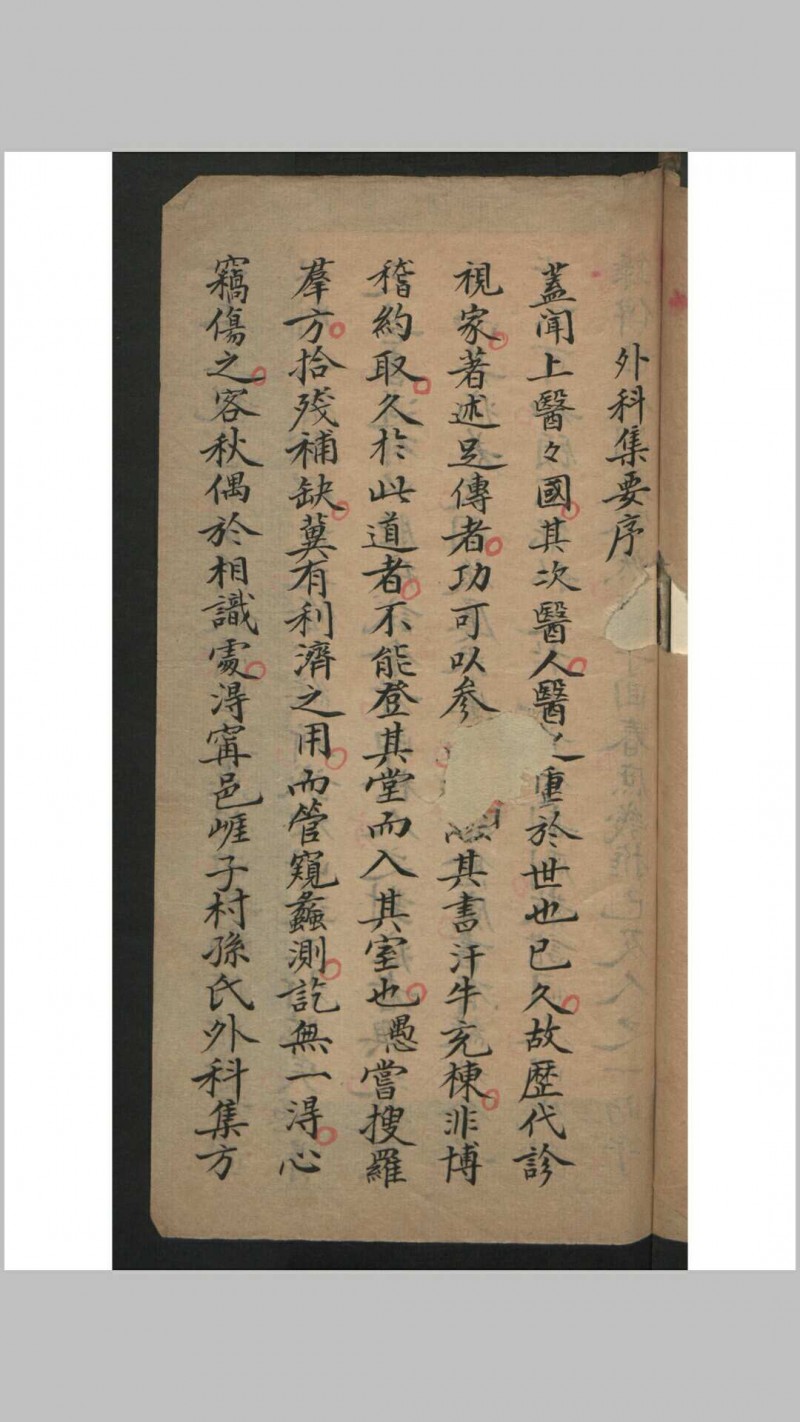 外科集要序
蓋聞上醫々國其次醫人醫之重於世也已久故歷代診
視家著述足傳者功可以參其書汗牛充棟非博
稽約取久於此道者不能登其堂而入其室也愚嘗搜羅
羣方拾殘補缺冀有利濟之用而管窺蠡測訖無一得心
竊傷之客秋偶於相識處得甯邑崕子村孫氏外科集方